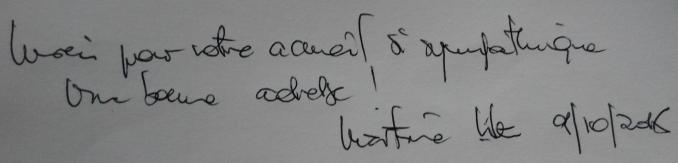 Merci pour votre accueil si sympathique
Une bonne adresse !
Martine /10/2016